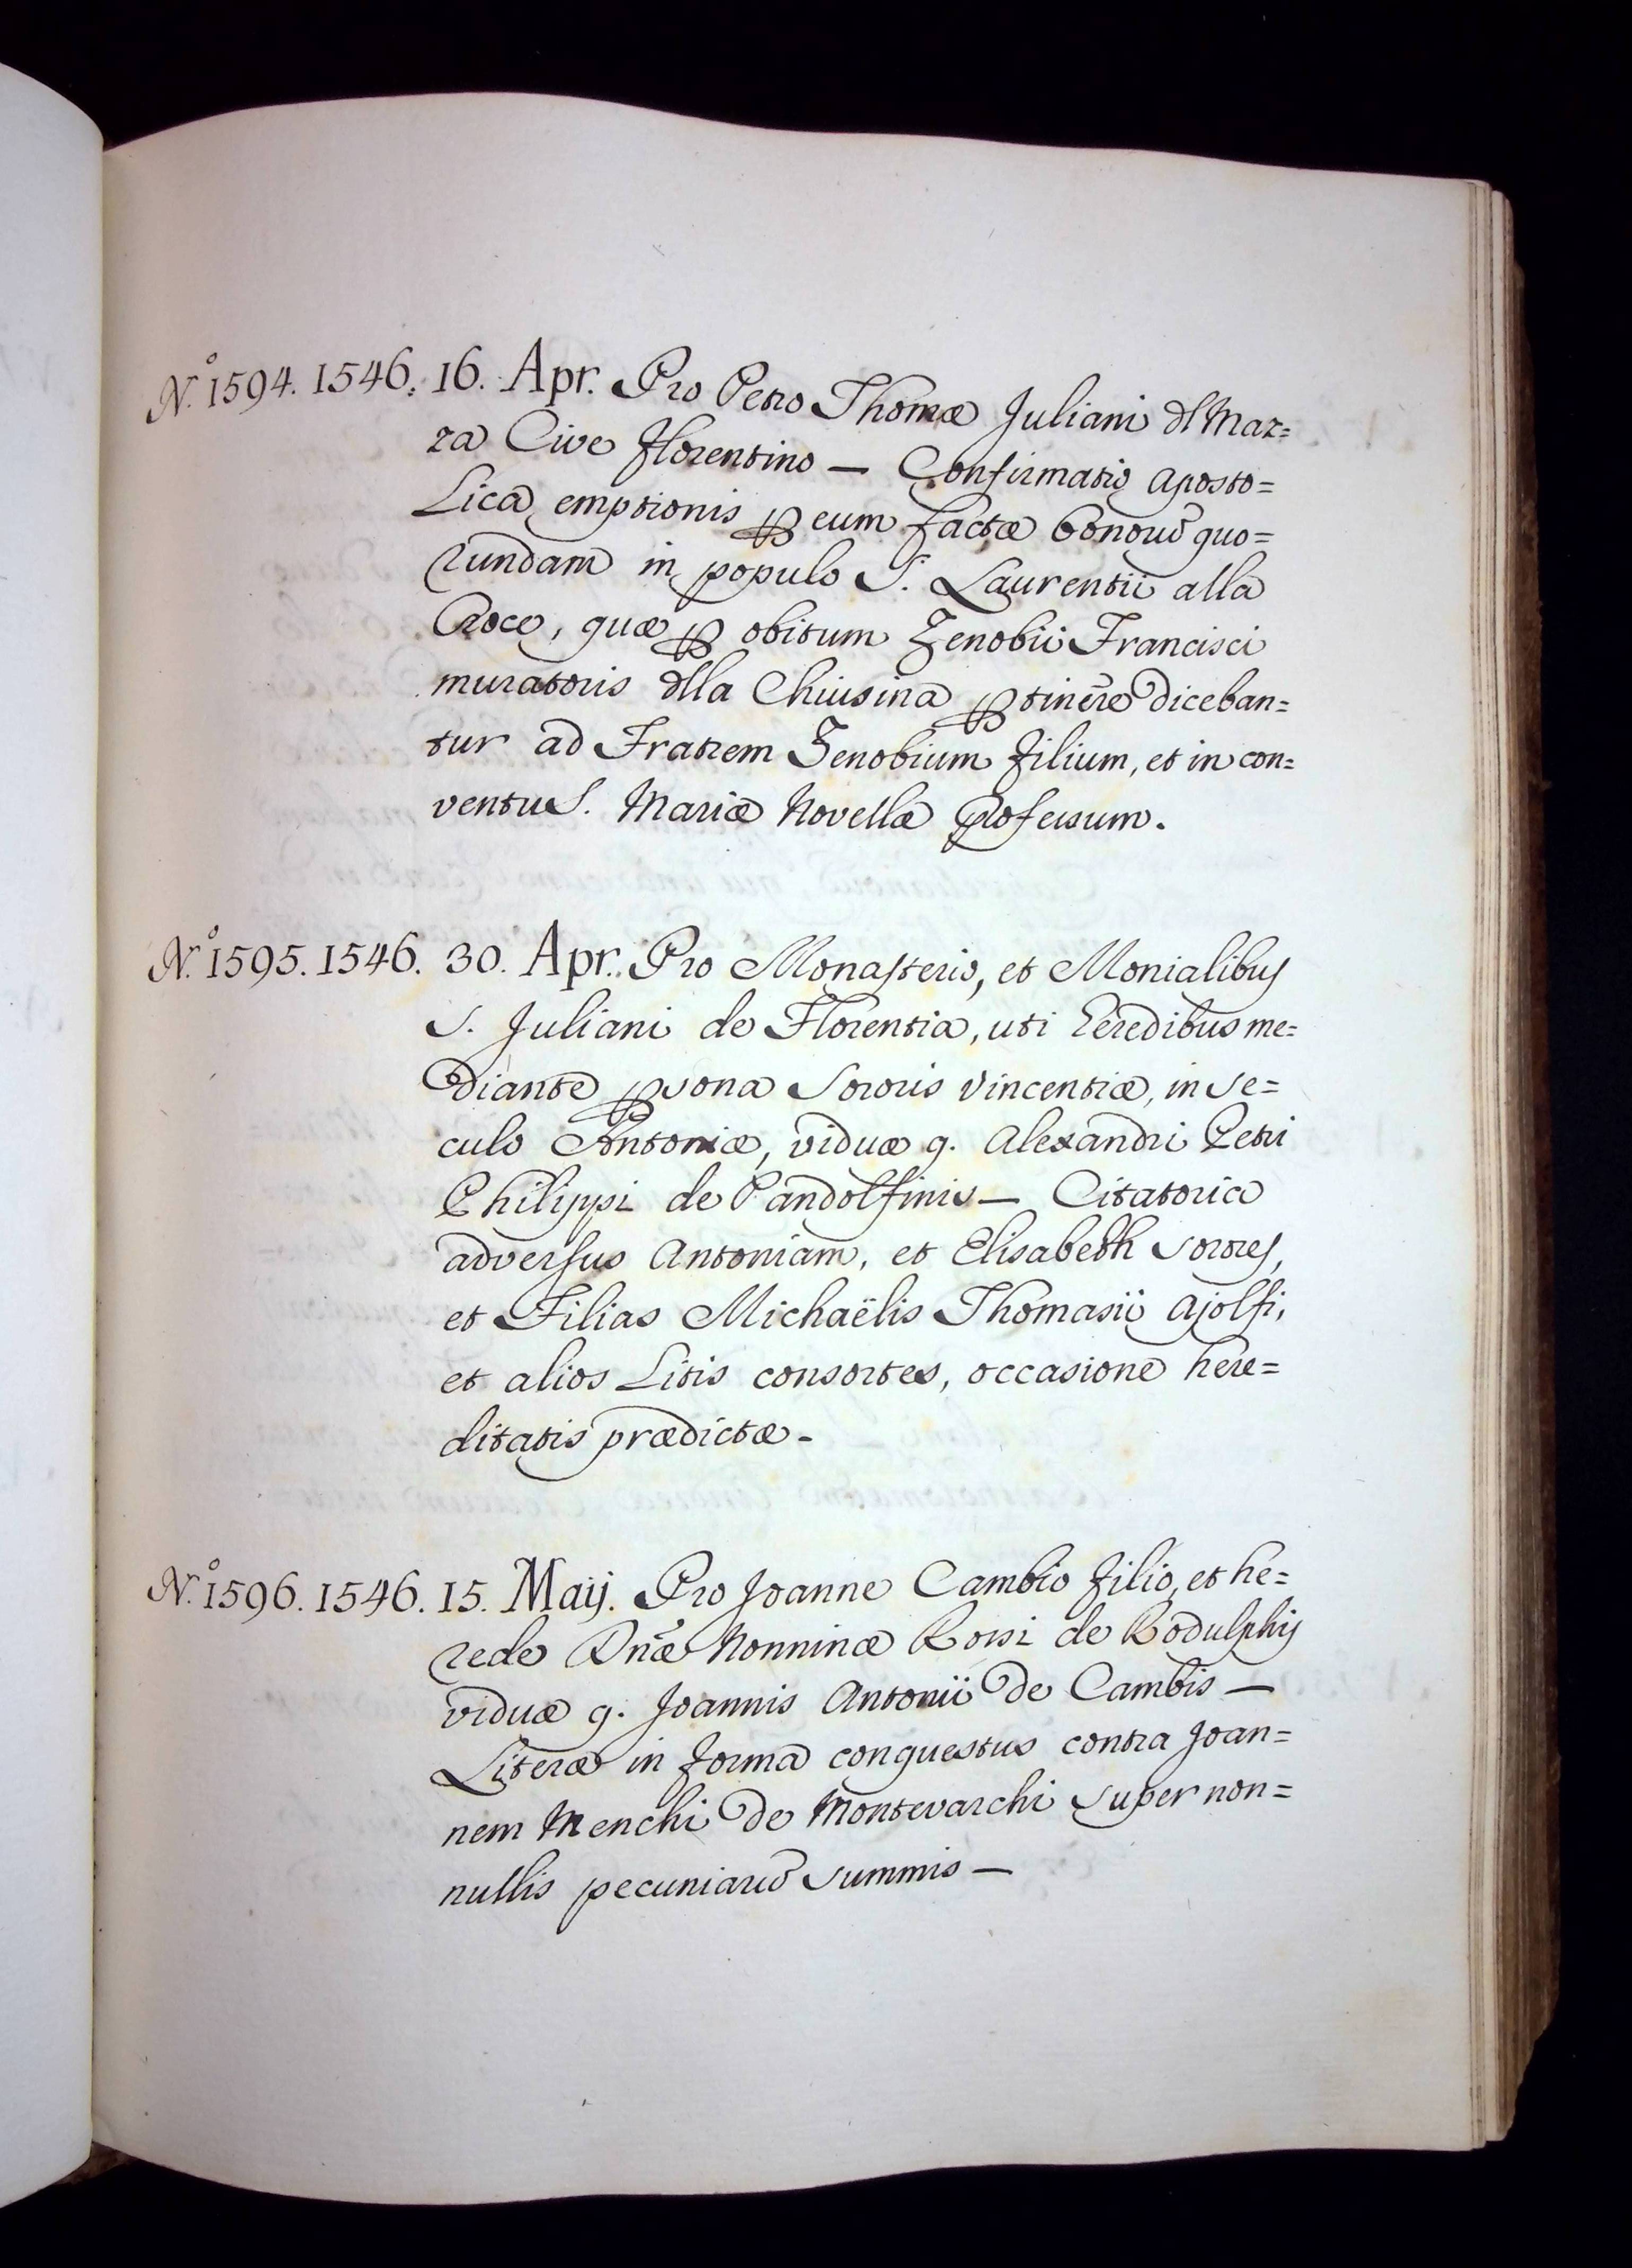 N.º 1594. 1546. 16. Apr. Pro Petro Thomæ Juliani dl Maz=
za Cive Florentino — Confirmatio Aposto=
lica emptionis ꝑ eum factæ bonorũ quo=
rundam in populo S. Laurentii alla
Croce, quæ ꝑ obitum Zenobii Francisci
muratoris dlla Chiusina ꝑtinẽre diceban=
tur ad Fratrem Zenobium filium, et in con=
ventu S. Mariæ Novellæ Professum.
N.º 1595. 1546. 30. Apr. Pro Monasterio, et Monialibus
S. Juliani de Florentia, uti heredibus me=
diante ꝑsona Sororis Vincentiæ, in se=
culo Antoniæ, viduæ q. Alexandri Petri
Philippi de Pandolfinis — Citatoria
adversus Antoniam, et Elisabeth Sorores,
et Filias Michaëlis Thomasii Ajolfi,
et alios Litis consortes, occasione here=
ditatis prædictæ.
N.º 1596. 1546. 15. Maij. Pro Joanne Cambio filio, et he=
rede Dnæ Nonninæ Rossi de Rodulphis
viduæ q. Joannis Antonii de Cambis —
Literæ in forma conquestus contra Joan=
nem Menchi de Montevarchi super non=
nullis pecuniarũ summis —